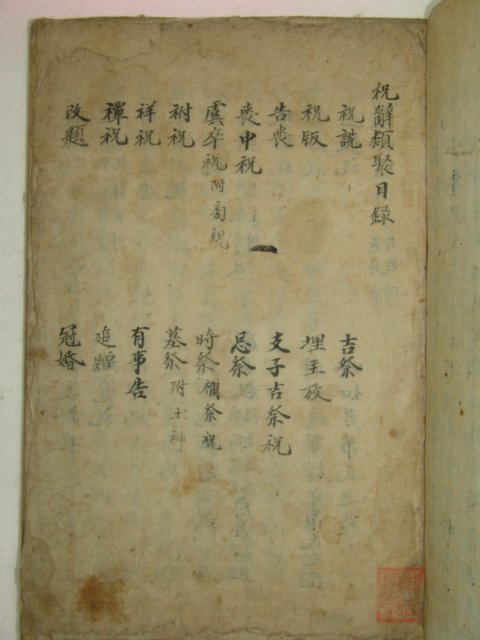 祝辭類聚目錄
祝說
祝版
告喪
喪中祝
虞卒祝附
祔祝
祥祝
禫祝
改題
吉祭
埋主
支子吉祭祝
忌祭
時祭禰祭祝
墓祭附土神
有事告
追贈
冠婚